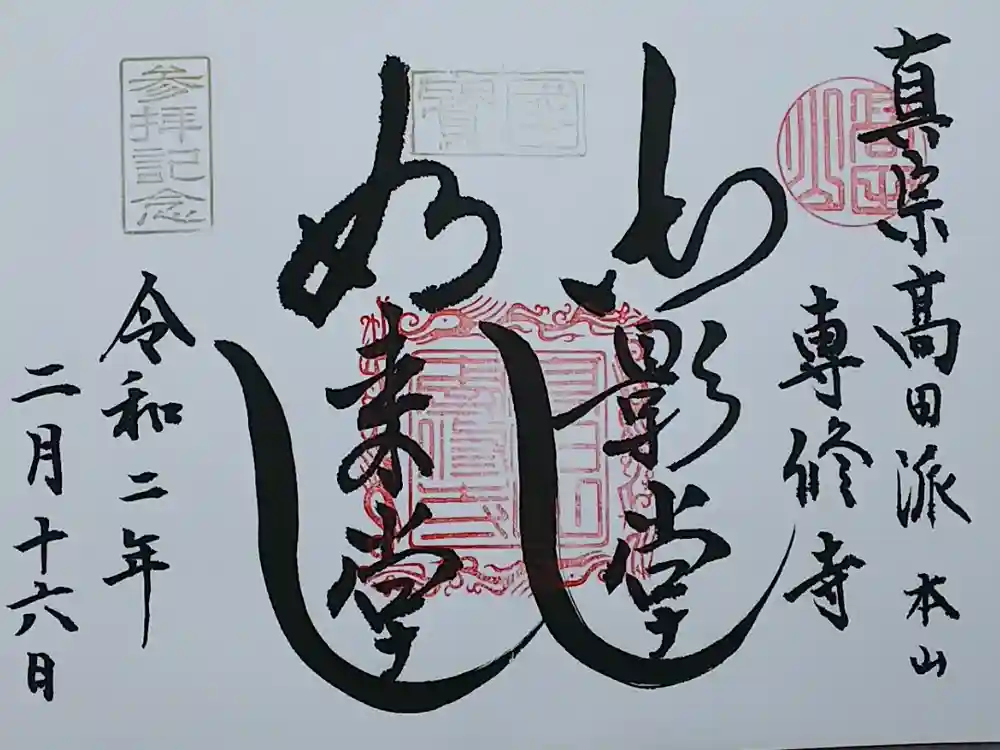 真宗高田派 本山
専修寺
御影堂
國寶
如来堂
参拝記念
令和二年
二月十六日